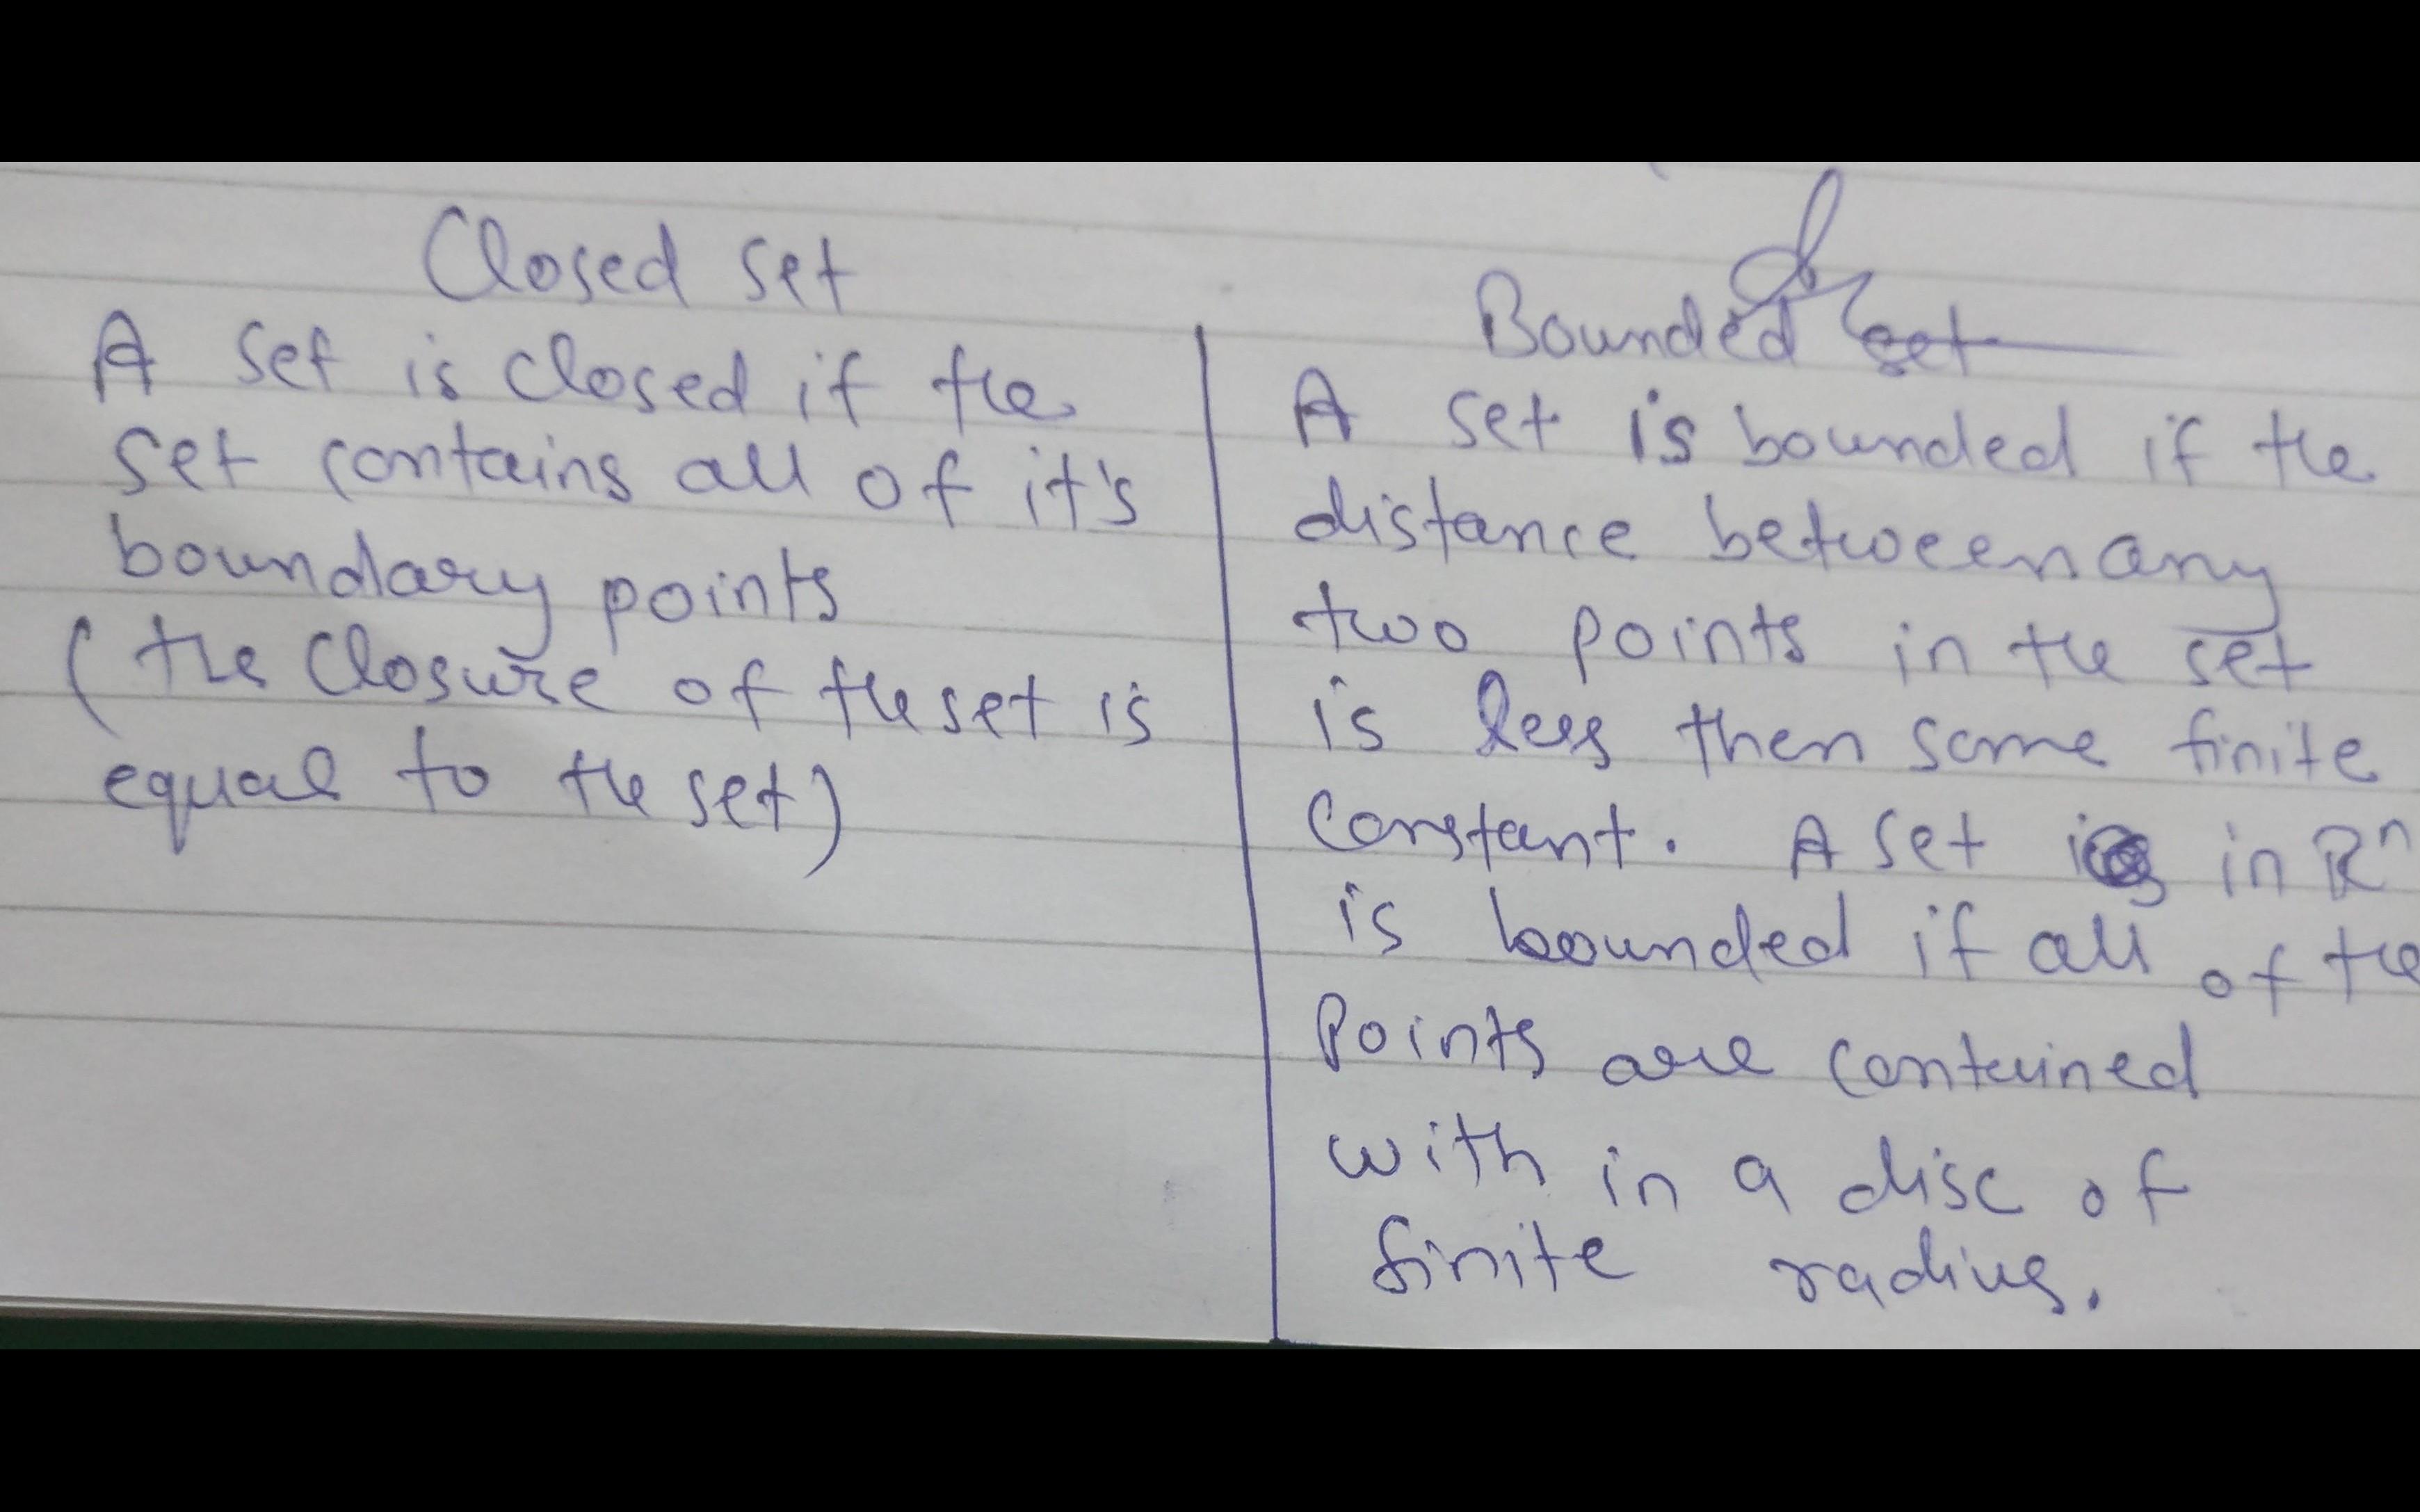 Closed set
A set is closed if the
set contains all of it's
boundary points
(the closure of the set is
equal to the set)
Bounded set
A set is bounded if the
distance between any
two points in the set
is less then some finite
constant. A set in Rⁿ
is bounded if all of the
points are contained
with in a disc of
finite radius.